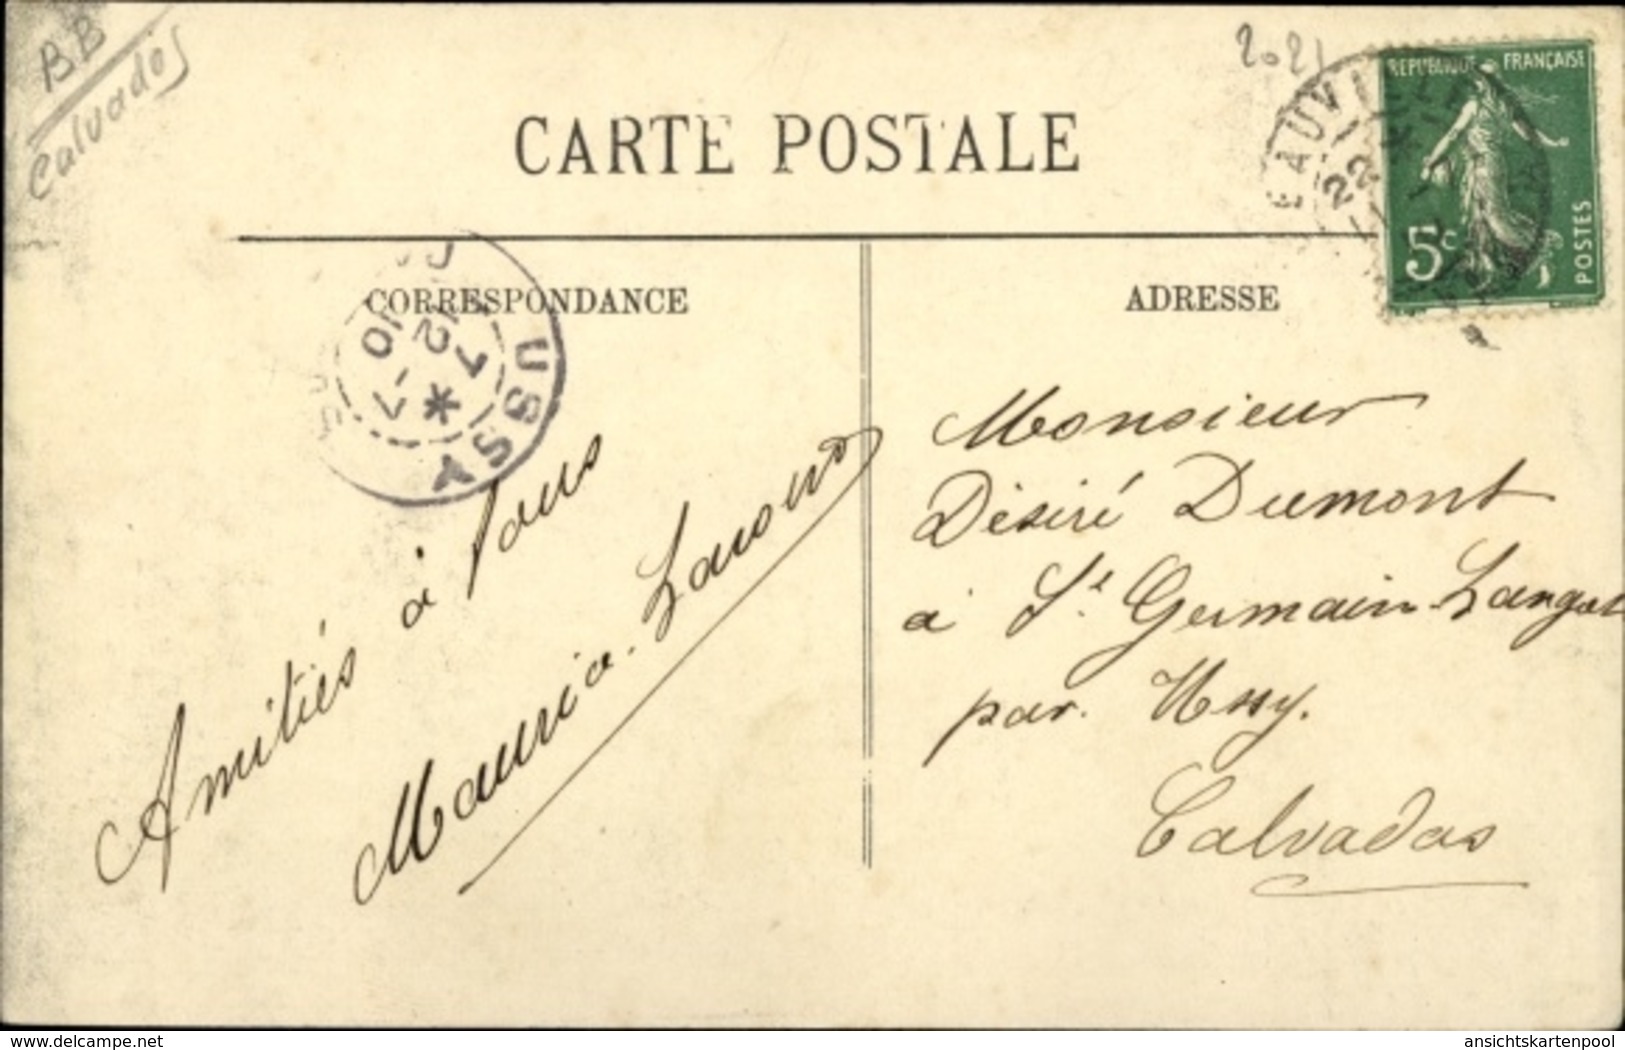 BB
Calvados
CARTE POSTALE
2021
REPUBLIQUE FRANÇAISE
5c
POSTES
EAUVILLE
22
CORRESPONDANCE
ADRESSE
USSY
7-10
12
Amitiés à tous
Monsieur
Désiré Dumont
à St Germain-Langot
par. Ussy.
Calvados
delcampe.net
ansichtskartenpool